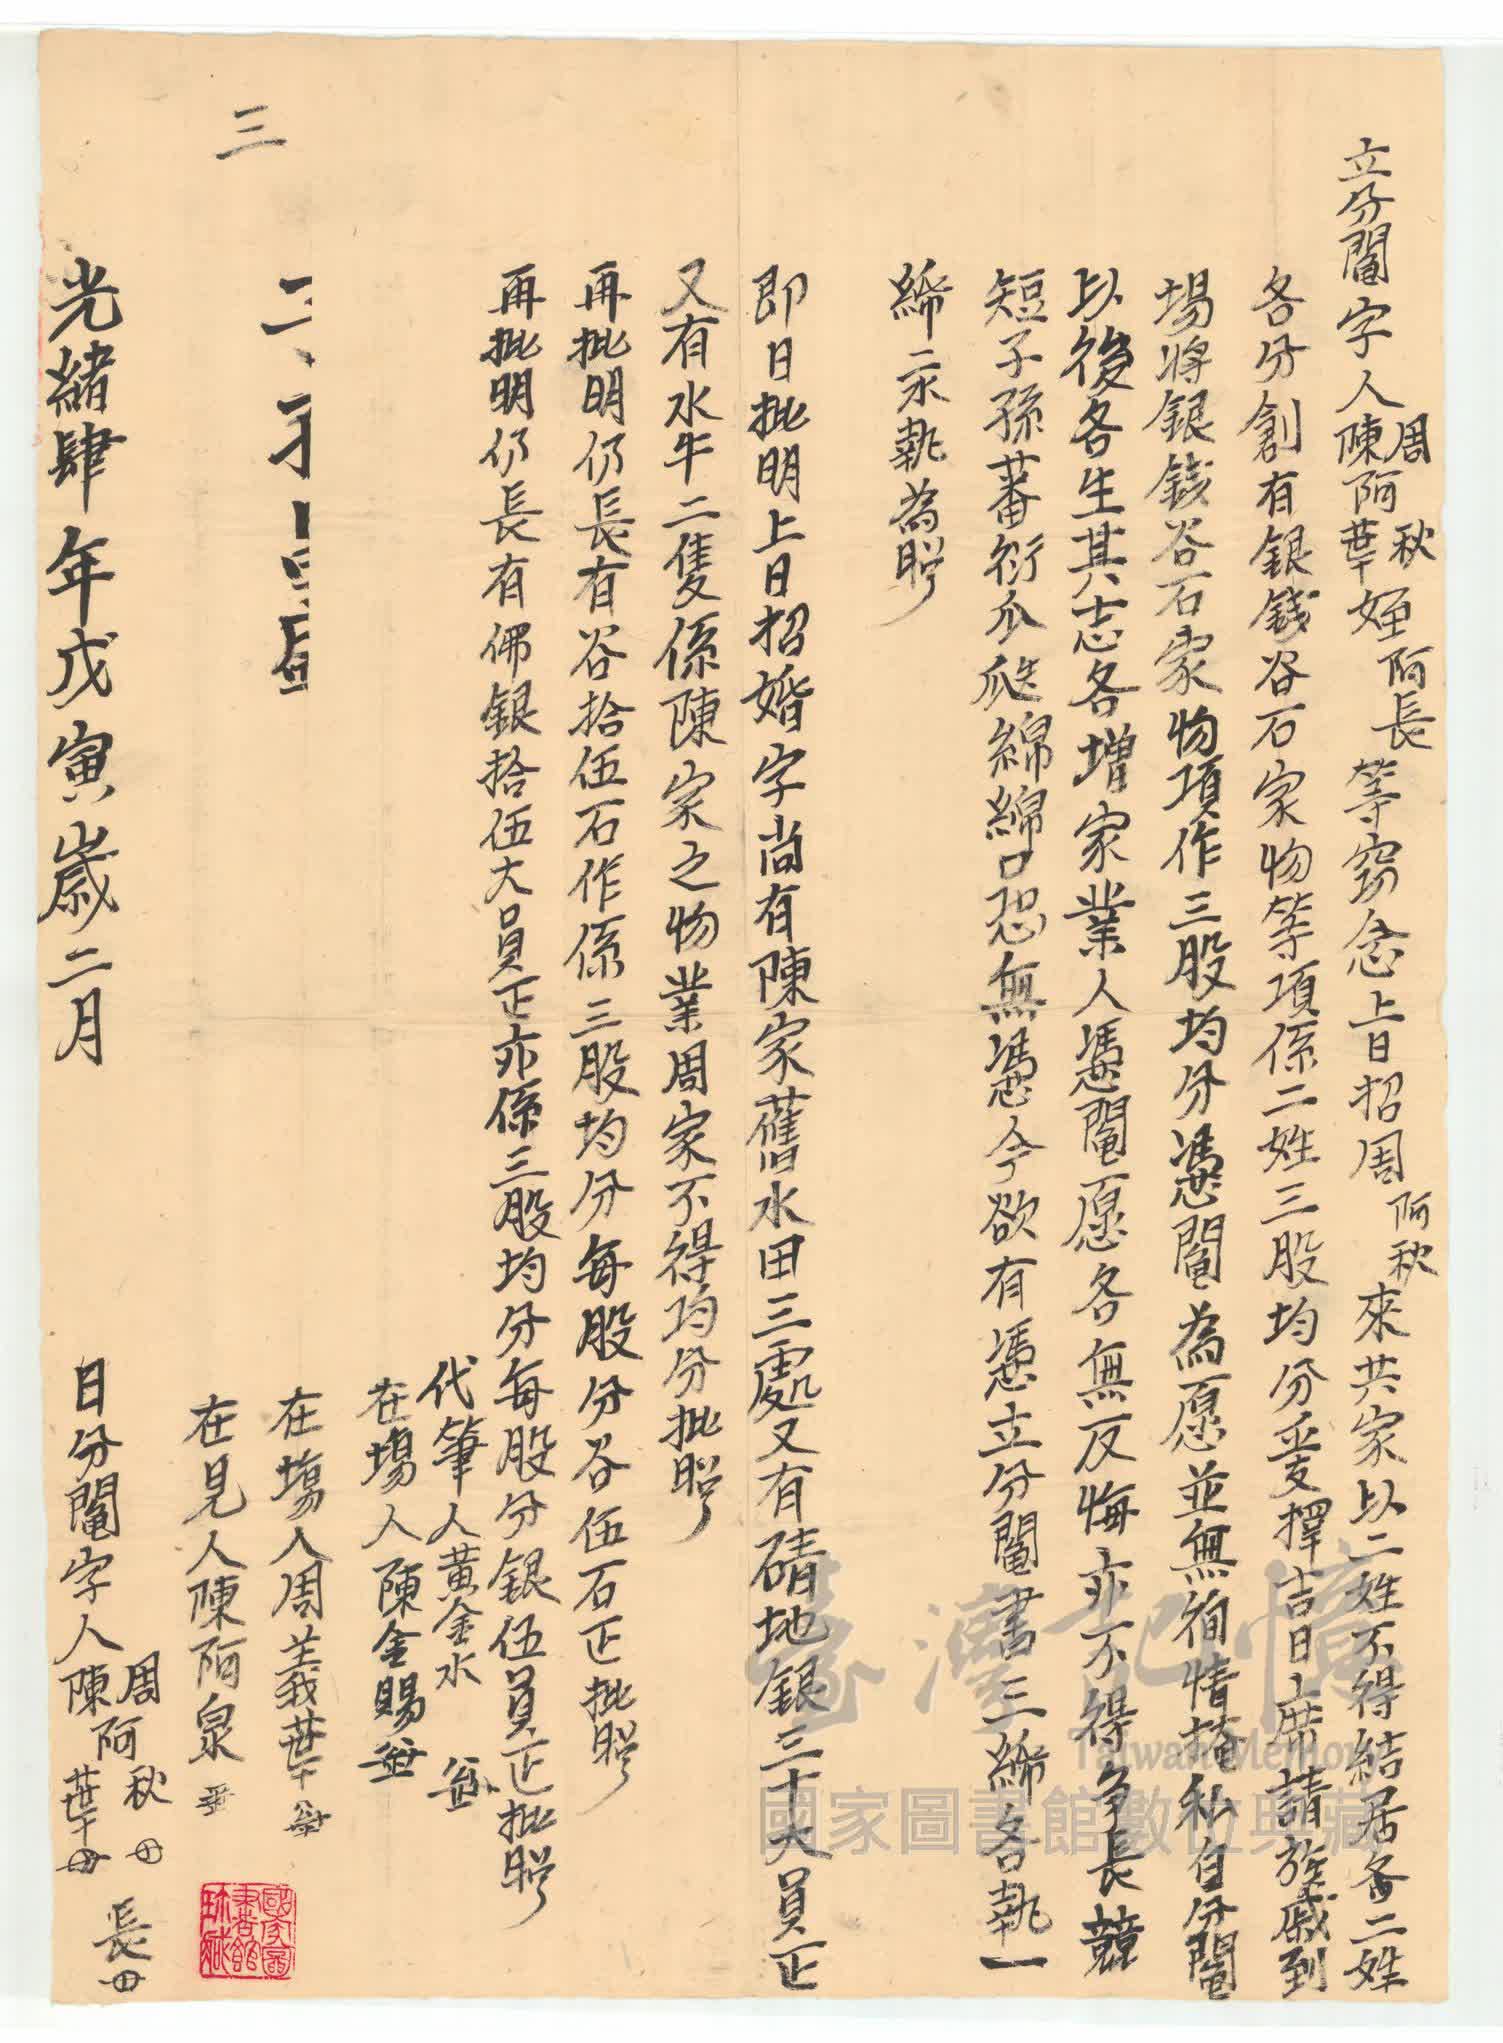 立分鬮字人陳阿葉周阿秋姪阿長等窃念上日招周阿秋來共家以二姓不得結居各二姓
各分創有銀錢谷石家物等項係二姓三股均分爰擇吉日立席請族戚到
場將銀錢谷石家物項作三股均分憑鬮為愿並無徇情掩私自分鬮
以後各生其志各增家業人憑鬮愿各無反悔亦不得争長競
短子孫蕃衍瓜瓞綿綿口恐無憑今欲有憑立分鬮書三紙各執一
紙永執為照
即日批明上日招婚字尚有陳家舊水田三處又有磧地銀三十大員正
又有水牛二隻係陳家之物業周家不得均分批照
再批明仍長有谷拾伍石作係三股均分每股分谷伍石正批照
再批明仍長有佛銀拾伍大員正亦係三股均分每股分銀伍員正批照
代筆人黃金水
在塲人陳金賜
在塲人周義葉
在見人陳阿泉
三
光緒肆年戊寅歲二月 日分鬮字人陳阿葉周阿秋長
國家圖書館珍藏
臺灣記憶
Taiwan Memory
國家圖書館數位典藏